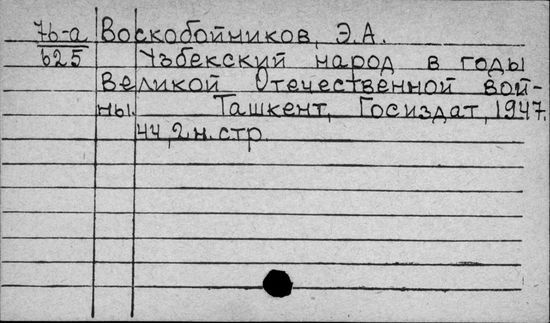 7b-а Воскобойников, Э.А.
625 Узбекский народ в годы
Великой Отечественной вой-
ны. Ташкент, Госиздат, 1947.
44, 2 н. стр.